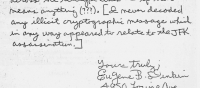 means anything (???). [I never decoded
any illicit cryptographic message which
in any way appeared to relate to the JFK
assassination.]
Yours truly,
Eugene B. Dinkin